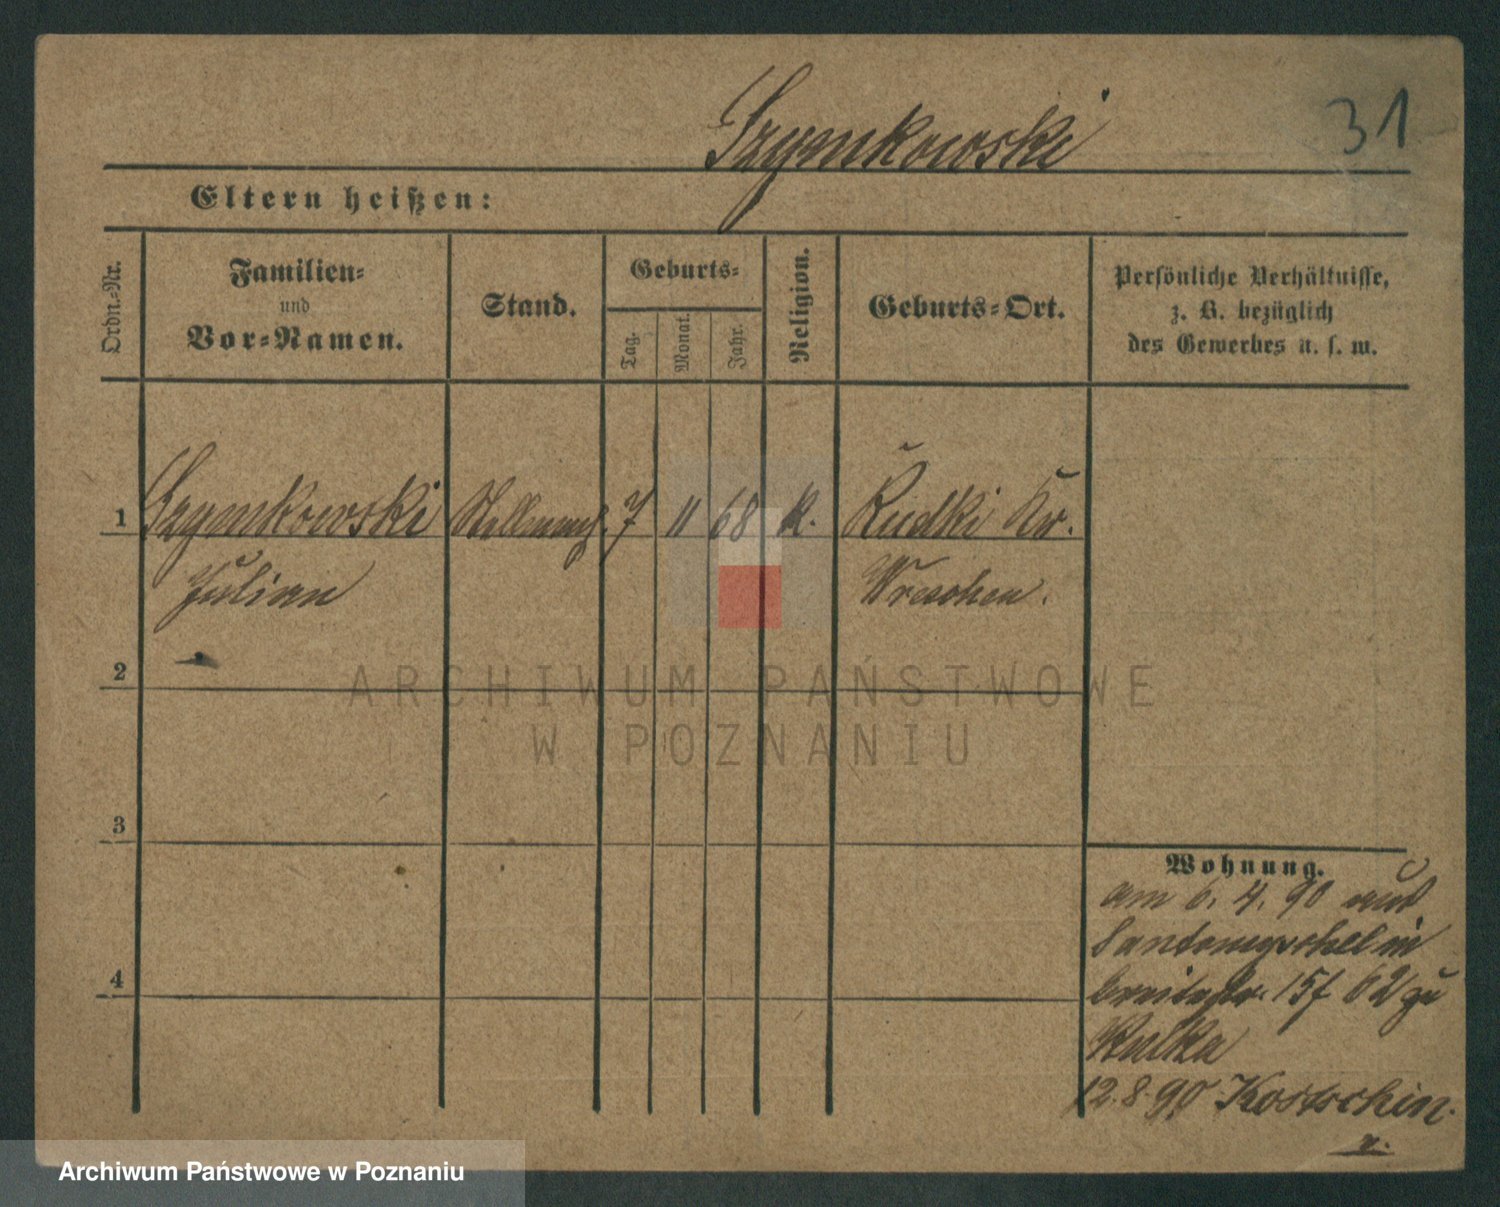 Szymkowski
31
Eltern heißen:
Ordn.-Nr.
Familien-
und
Vor-Namen.
Stand.
Geburts-
Tag.
Monat.
Jahr.
Religion.
Geburts-Ort.
Persönliche Verhältnisse,
z. B. bezüglich
des Gewerbes u. s. w.
1 Szymkowski Stellmach. 7 11 68 k. Rudki Kr.
Julian Wreschen.
2
3
4
Wohnung.
am 6. 4. 90 aus
in
15 62 zu
12.8.90 Kostschin.
ARCHIWUM PAŃSTWOWE
W POZNANIU
Archiwum Państwowe w Poznaniu